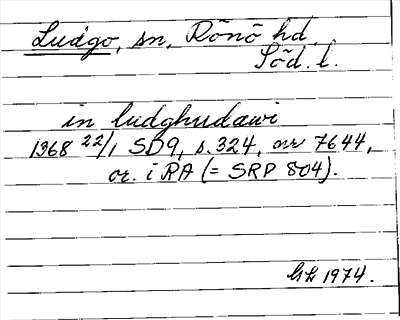 Ludgo, sn, Rönö hd.
Söd. l.
in ludghudawi
1368 22/1 SD9, s. 324, nr 7644,
or. i RA (= SRP 804).
1974.